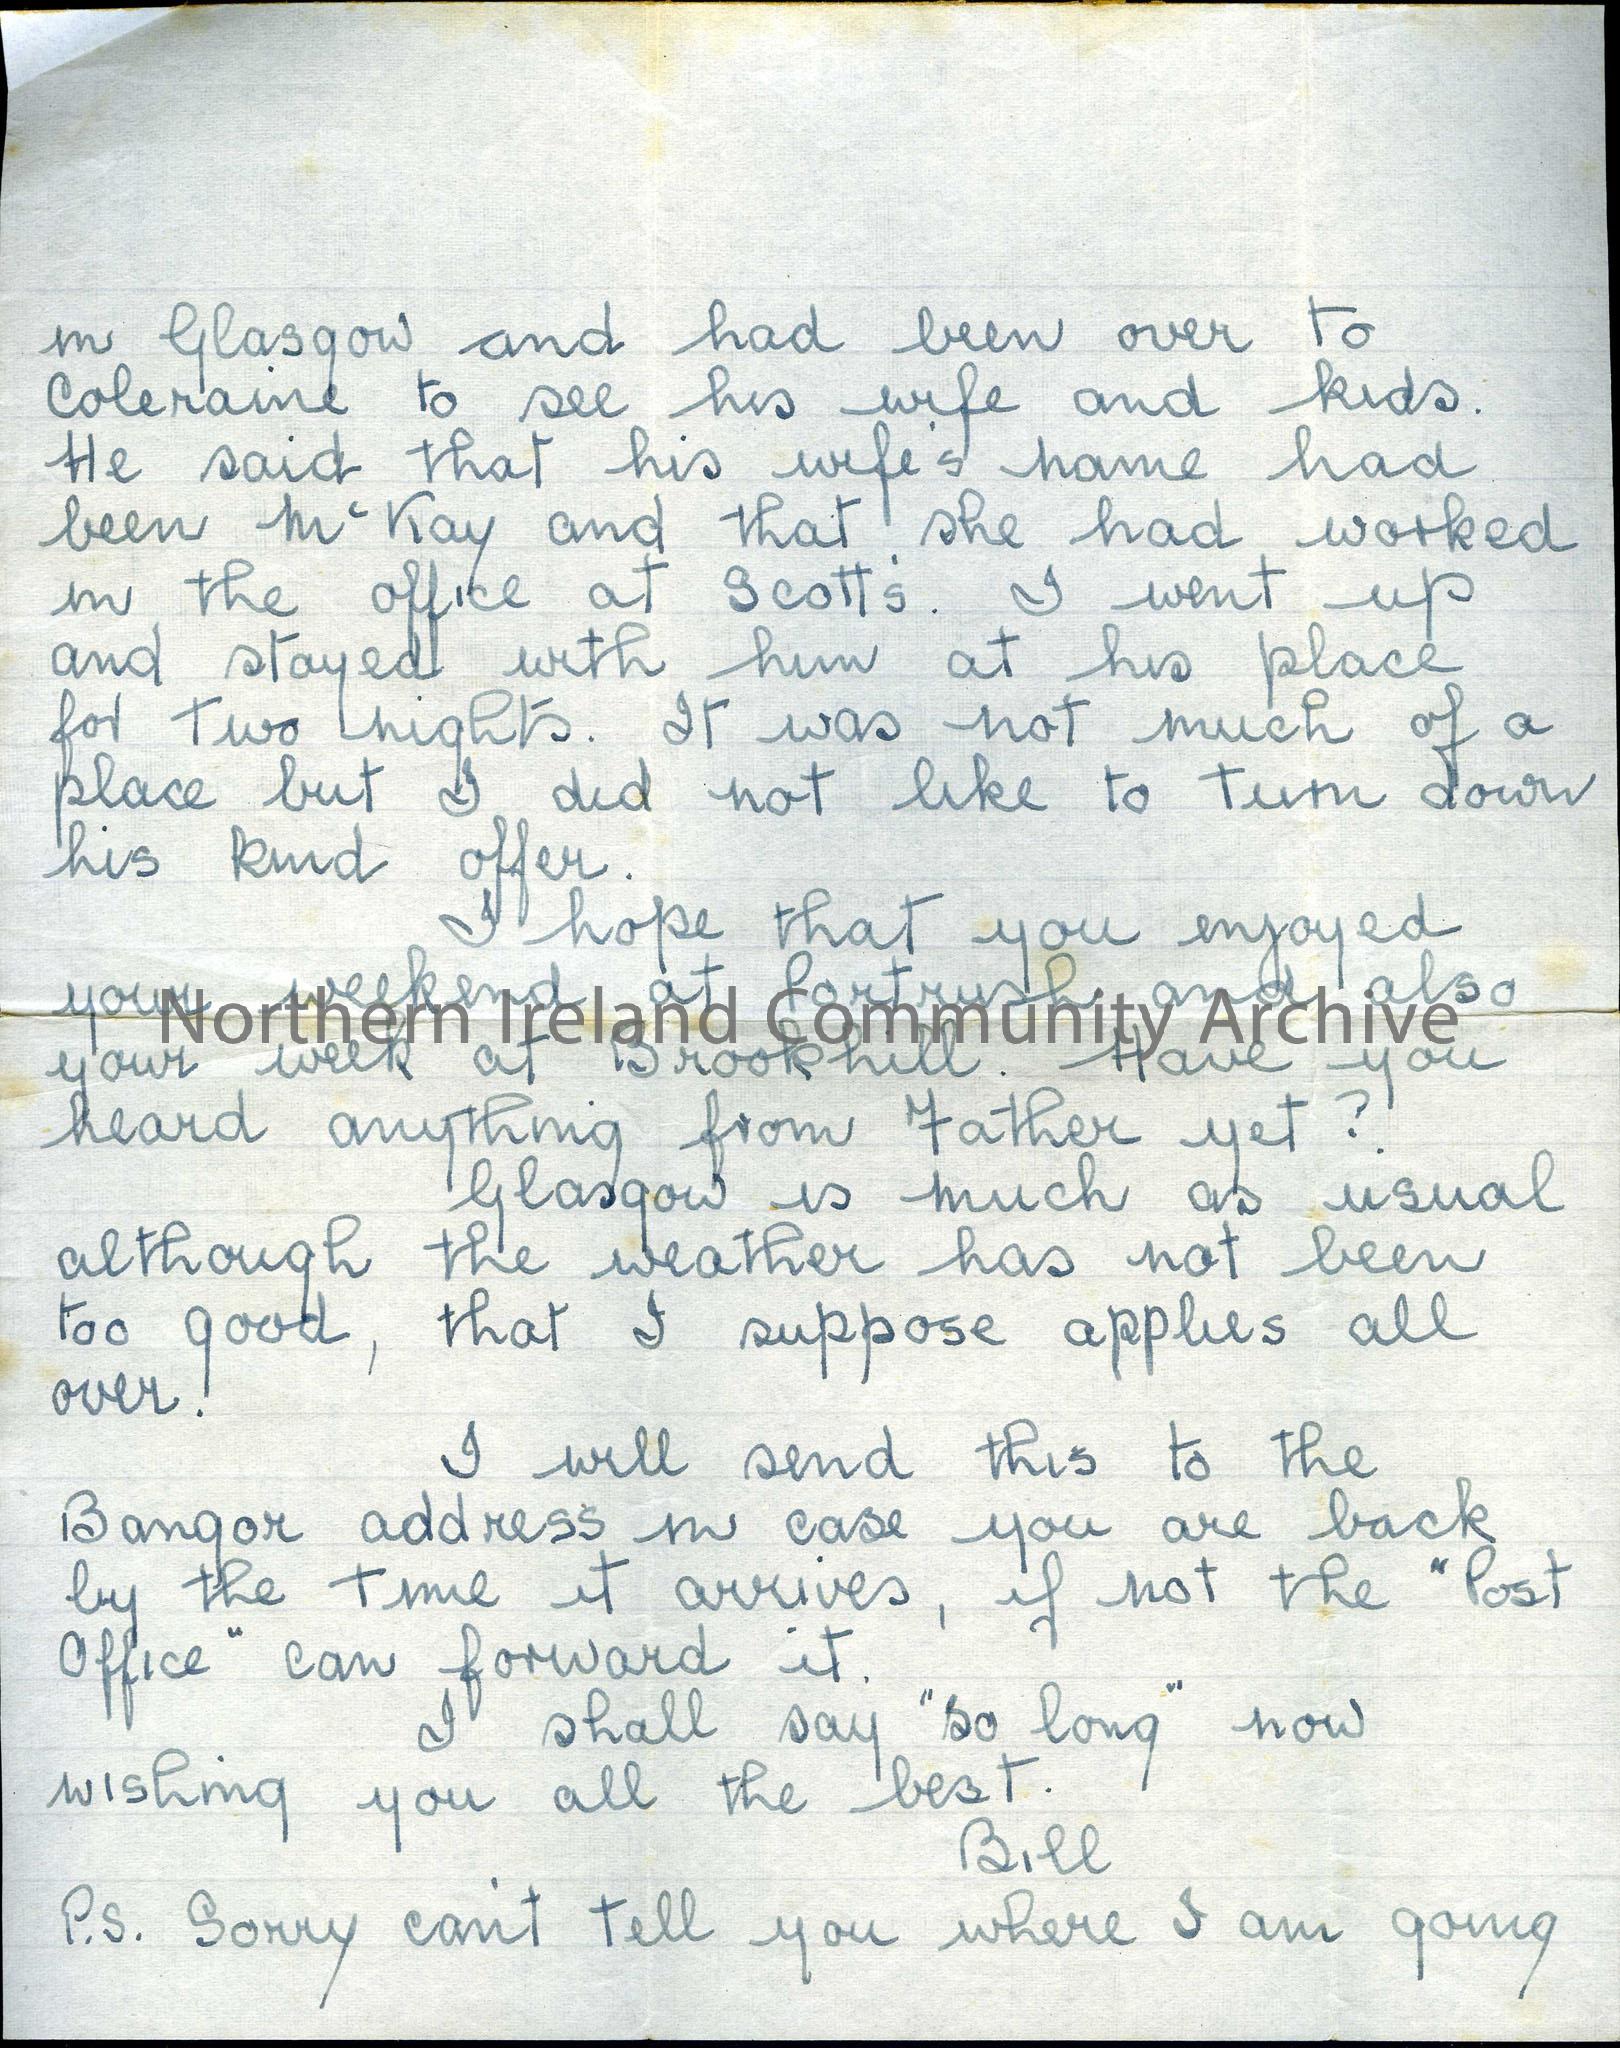 in Glasgow and had been over to
Coleraine to see his wife and kids.
He said that his wife's name had
been McKay and that she had worked
in the office at Scott's. I went up
and stayed with him at his place
for two nights. It was not much of a
place but I did not like to turn down
his kind offer.
I hope that you enjoyed
your weekend at Portrush and also
Northern Ireland Community Archive
your week at Brookhill. Have you
heard anything from Father yet?
Glasgow is much as usual
although the weather has not been
too good, that I suppose applies all
over.
I will send this to the
Bangor address in case you are back
by the time it arrives, if not the "Post
Office" can forward it.
I shall say "so long" now
wishing you all the best.
Bill
P.S. Sorry can't tell you where I am going